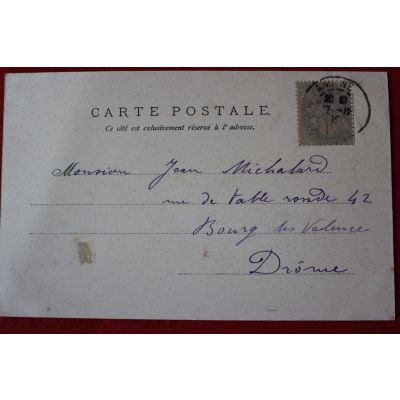 CARTE POSTALE.
Ce côté est exclusivement réservé à l'adresse.
Monsieur Jean Michalard
rue de table ronde 42
Bourg les Valence
Drôme